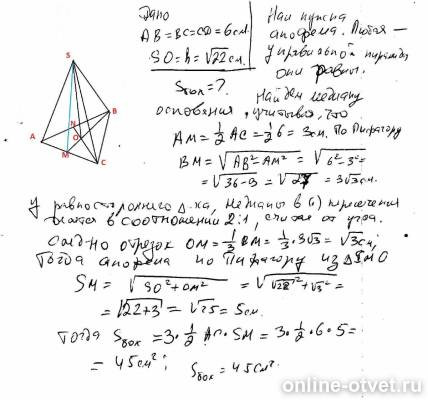 Дано
AB=BC=CD=6см.
SO=h=√22см.
Sбок=?
Нам нужна
апофема. Любая —
у правильной пирамиды
они равны.
Найдем медиану
основания, учитывая, что
AM=1/2 AC=1/2·6=3см. По Пифагору
BM=√AB²-AM² = √6²-3²=
=√36-9 = √27 = 3√3см
У равностороннего Δ-ка, медианы в () пересечения
делятся в соотношении 2:1, считая от угла.
отрезок OM=1/3 BM=1/3·3√3=√3см;
Тогда апофема по Пифагору из ΔSMO
SM=√SO²+OM² = √√22²+√3²=
=√22+3 = √25=5см.
Тогда Sбок=3·1/2·AC·SM=3·1/2·6·5=
=45см²; Sбок=45см².
S
N
B
A
O
M
C
online-otvet.ru